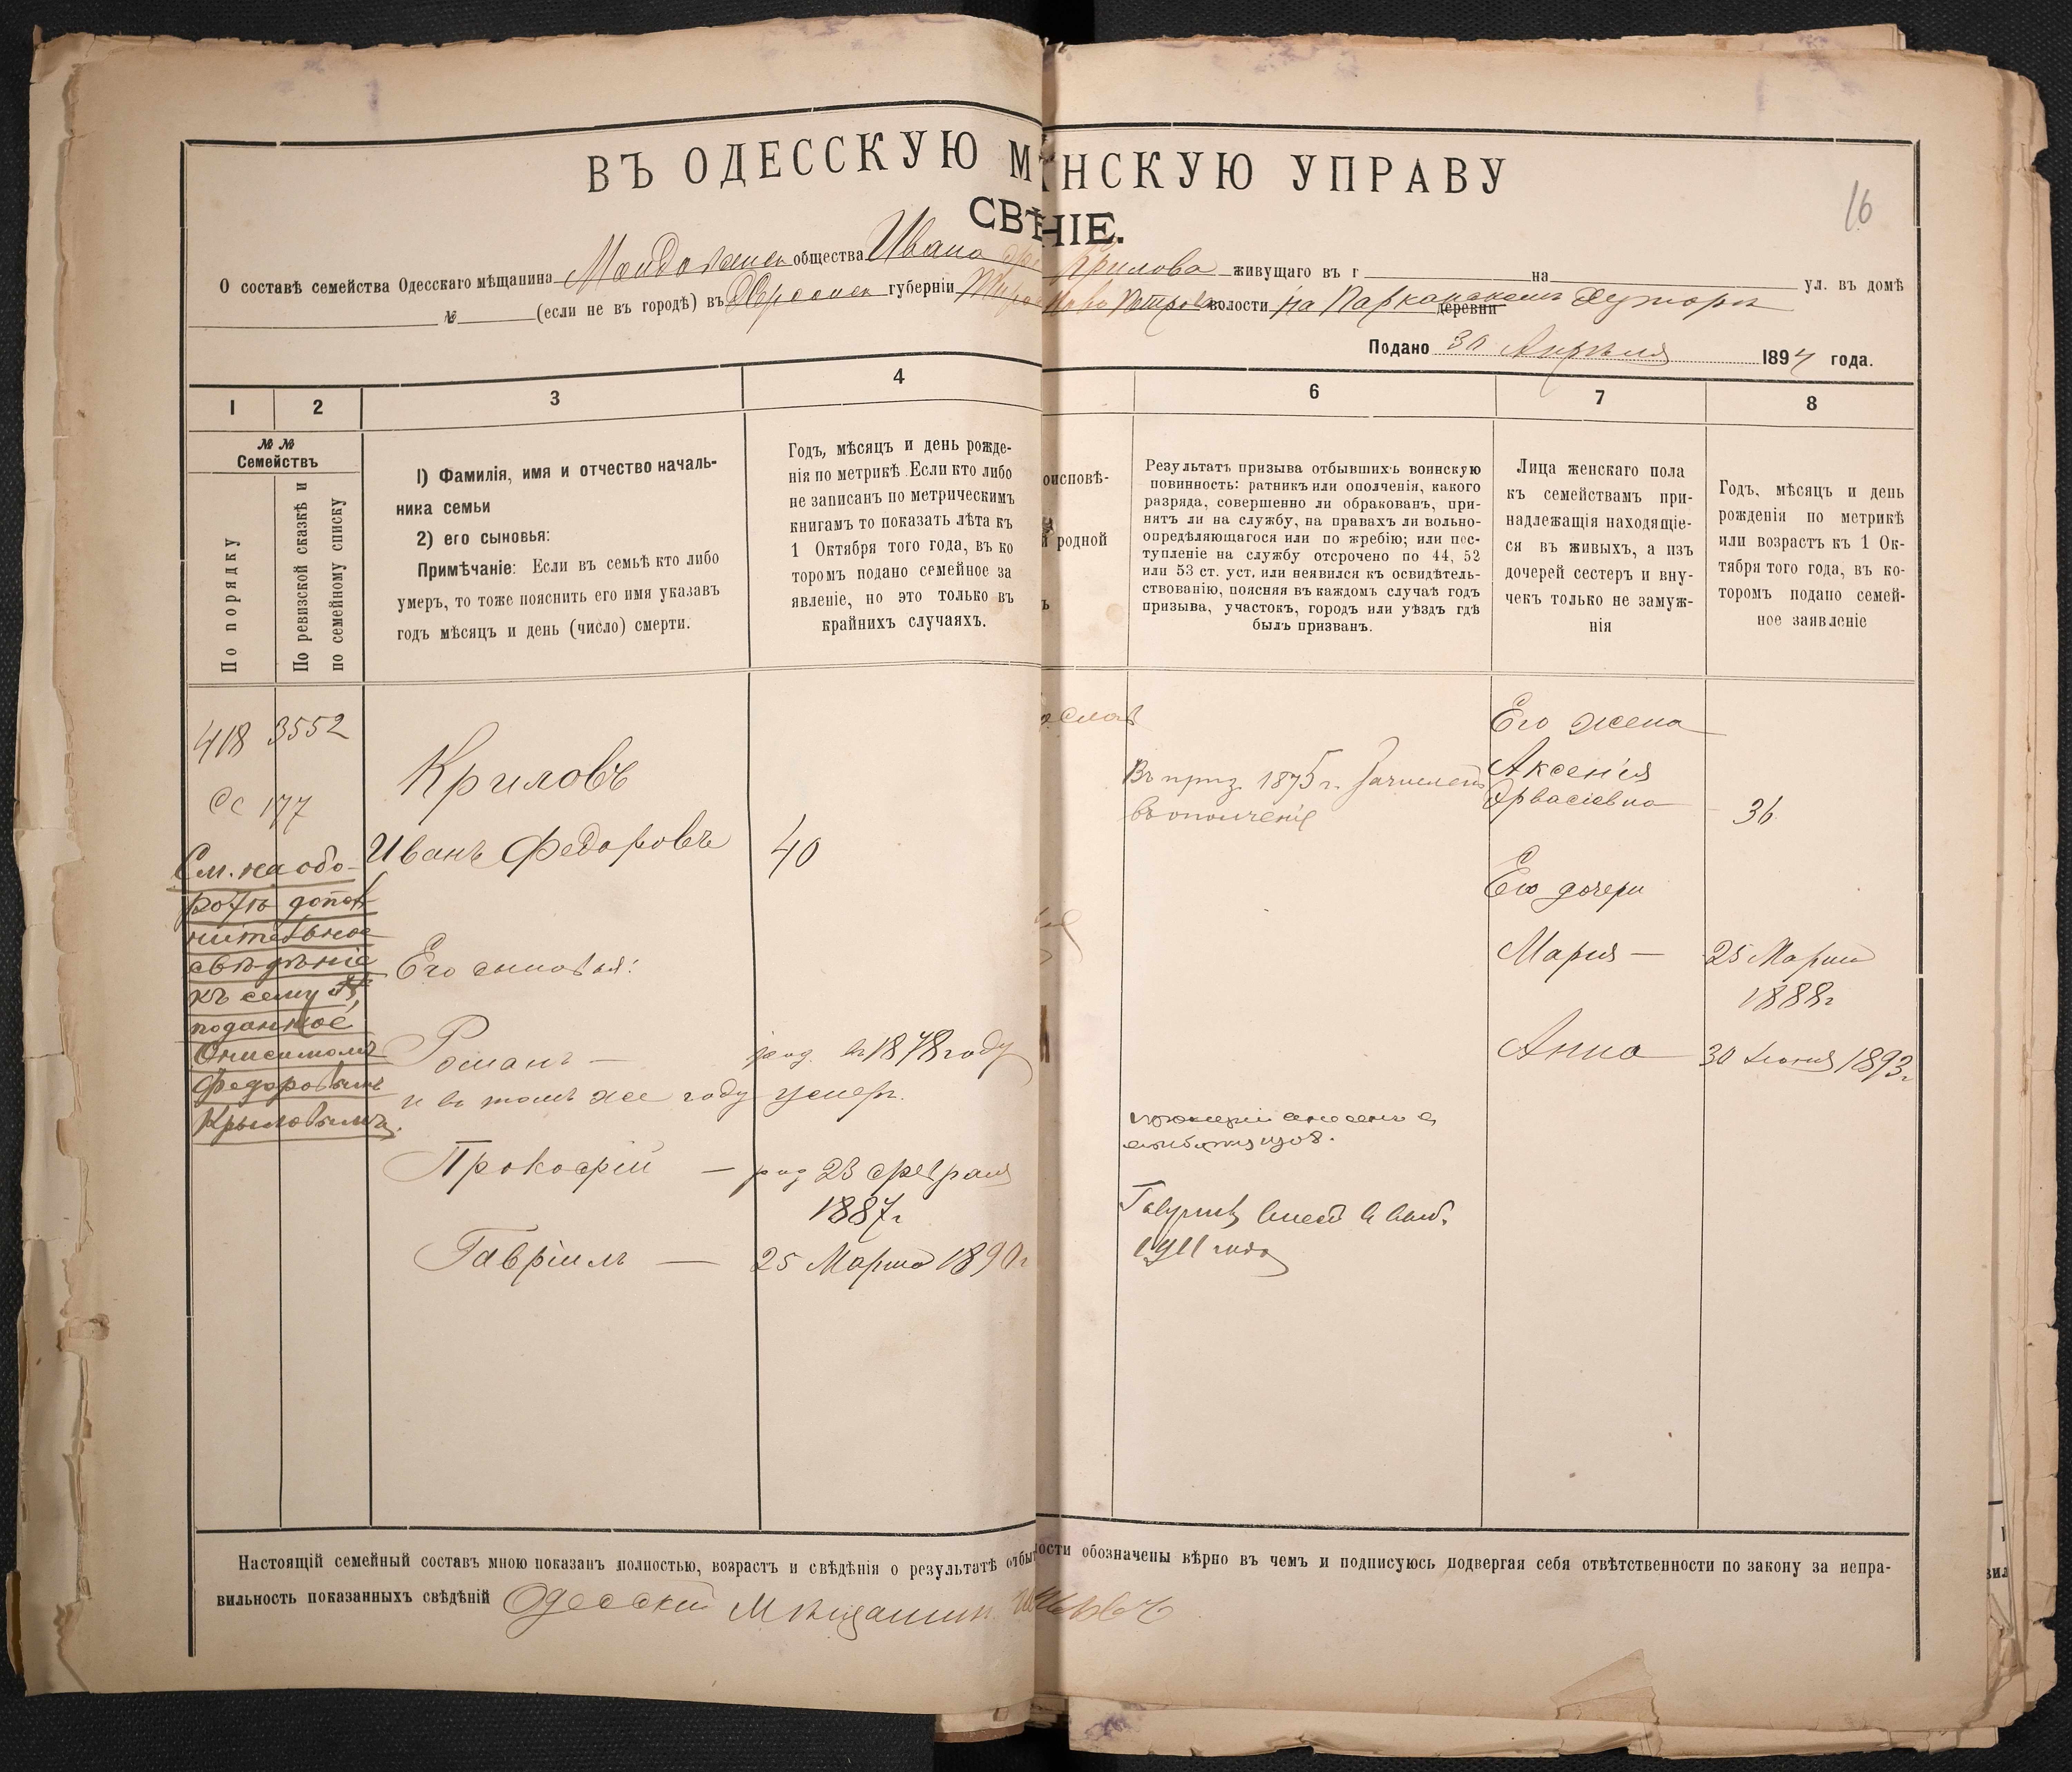 ВЪ ОДЕССКУЮ М НСКУЮ УПРАВУ
СВѢ НІЕ.
16
О составѣ семейства Одесскаго мѣщанина общества Ивана Крилова живущаго въ г на ул. въ домѣ
№ (если не въ городѣ) въ Херсонск губерніи волости на Парканскомъ Хуторѣ деревни
Подано 30 Апрѣля 1894 года.
1 2 3 4 6 7 8
№ № Семействъ
По порядку
По ревизской сказкѣ и
по семейному списку
1) Фамилія, имя и отчество началь-
ника семьи
2) его сыновья:
Примѣчаніе: Если въ семьѣ кто либо
умеръ, то тоже пояснить его имя указавъ
годъ мѣсяцъ и день (число) смерти.
Годъ, мѣсяцъ и день рожде-
нія по метрикѣ Если кто либо
не записанъ по метрическимъ
книгамъ то показать лѣта къ
1 Октября того года, въ ко
торомъ подано семейное за
явленіе, но это только въ
крайнихъ случаяхъ.
оисповѣ-
й родной
ъ
Результатъ призыва отбывшихъ воинскую
повинность: ратникъ или ополченія, какого
разряда, совершенно ли обракованъ, при-
нятъ ли на службу, на правахъ ли вольно-
опредѣляющагося или по жребію; или пос-
тупленіе на службу отсрочено по 44, 52
или 53 ст. уст, или неявился къ освидѣтель-
ствованію, поясняя въ каждомъ случаѣ годъ
призыва, участокъ, городъ или уѣздъ гдѣ
былъ призванъ.
Лица женскаго пола
къ семействамъ при-
надлежащія находящіе-
ся въ живыхъ, а изъ
дочерей сестеръ и вну-
чекъ только не замуж-
нія
Годъ, мѣсяцъ и день
рожденія по метрикѣ
или возрастъ къ 1 Ок-
тября того года, въ ко-
торомъ подано семей-
ное заявленіе
418 3552
177
См. на обо-
ротѣ допол
нительное
свѣдѣніе
къ сему №,
поданное
Онисимомъ
Федоровымъ
Крыловымъ.
Криловъ
Иванъ Федоровъ 40
Его сыновья:
Романъ — род. въ 1878 году
и въ томъ же году умеръ.
Прокофій — род 23 февраля
1887 г
Гавріилъ — 25 Марта 1890 г
слав
Въ приз. 1875 г. Зачисленъ
въ ополченіе
1908.
1911 года
Его жена
Аксенія
36
Его дочери
Марія — 25 Марта
1888 г
Анна — 30 Іюня 1893 г
Настоящій семейный составъ мною показанъ полностью, возрастъ и свѣдѣнія о результатѣ отбы ости обозначены вѣрно въ чемъ и подписуюсь подвергая себя отвѣтственности по закону за непра-
вильность показанныхъ свѣдѣній Одесскій Мѣщанин